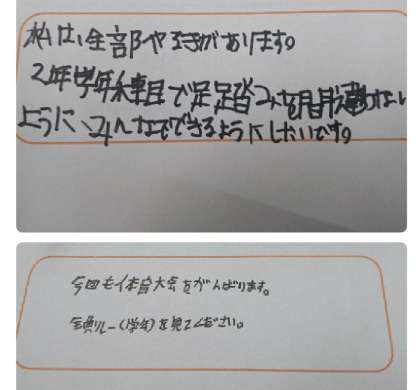 私は、全部やるきがあります。
2年学年種目で足踏みを間違わない
ように、みんなでできるようにしたいです。
今回も体育大会をがんばります。
全員リレー(学年)を見てください。